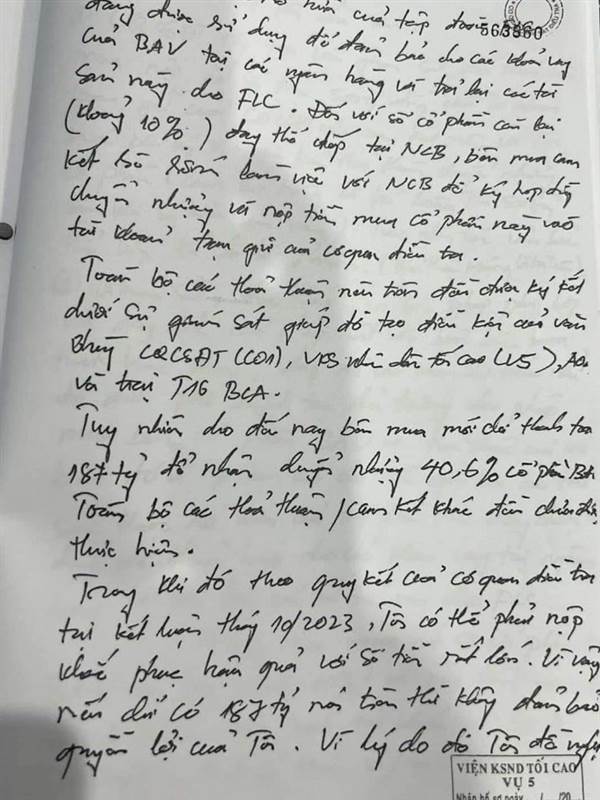 đang được sử dụng để đảm bảo cho các khoản vay
563960
của BAV tại các ngân hàng và trả lại các tài
sản này cho FLC. Đối với số cổ phần còn lại
(khoảng 10%) đang thế chấp tại NCB, bên mua cam
kết sẽ làm việc với NCB để ký hợp đồng
chuyển nhượng và nộp tiền mua cổ phần này vào
tài khoản tạm giữ của cơ quan điều tra.
Toàn bộ các thoả thuận nêu trên đều được ký kết
dưới sự giám sát giúp đỡ tạo điều kiện của văn
CQCSĐT (C01), VKS nhân dân tối cao (V5),
và trại T16 BCA.
Tuy nhiên cho đến nay bên mua mới chỉ thanh toán
187 tỷ để nhận chuyển nhượng 40,6% cổ phần
Toàn bộ các thoả thuận / cam kết khác đều chưa được
thực hiện.
Trong khi đó theo quy kết của cơ quan điều tra
tại kết luận tháng 10/2023, Tôi có thể phải nộp
khắc phục hậu quả với số tiền rất lớn. Vì vậy
nếu chỉ có 187 tỷ nói trên thì không đảm bảo
quyền lợi của Tôi. Vì lý do đó Tôi đề nghị
VIỆN KSND TỐI CAO
VỤ 5
Nhận hồ sơ ngày / /20